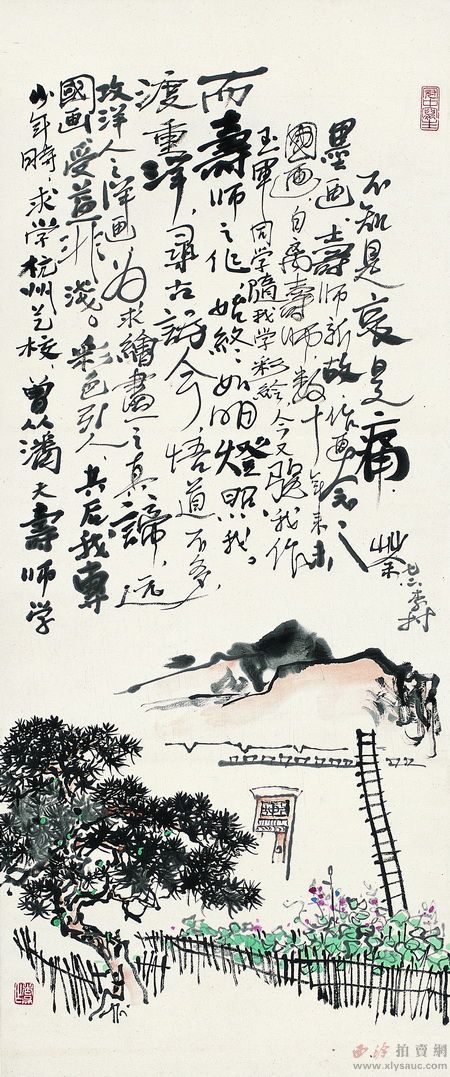 少年時，求学杭州艺校，曾从潘天壽师学
國画，受益非浅。彩色引人，其后我專
攻洋人之洋画，为求繪畫之真諦，远
渡重洋，尋古訪今，悟道不多，
而壽师之作，始终如明燈照我。
同学 我学彩绘，今又 我作
國画，自离壽师，数十年来未
墨画，壽师新故，作画念之，
不知是哀是痛。
荼 七二 李村
西泠拍賣網
www.xlysauc.com